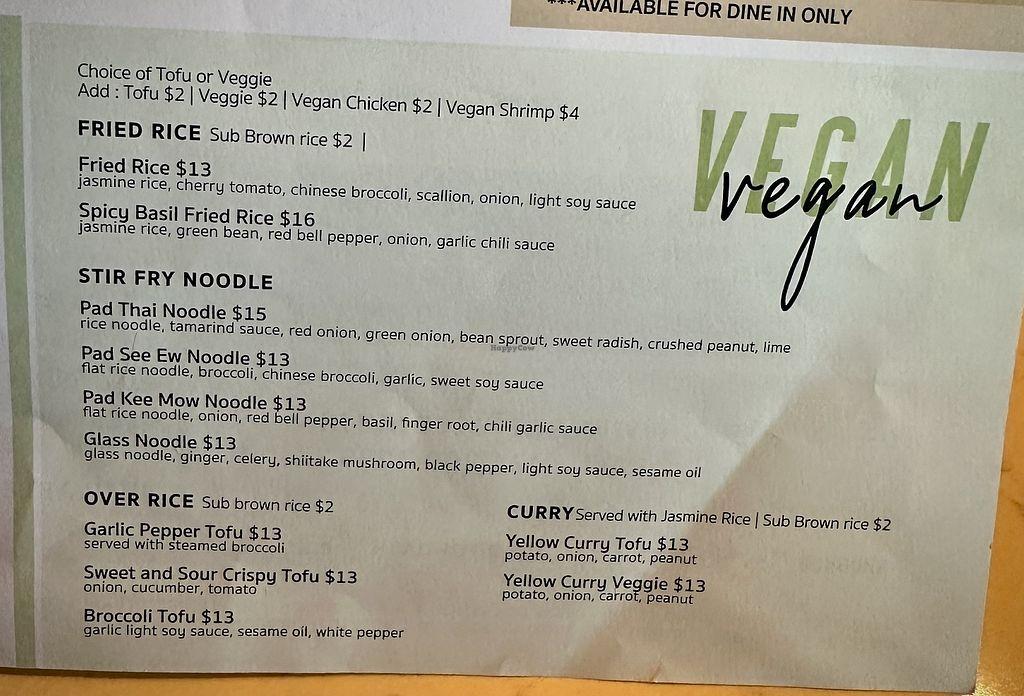 ***AVAILABLE FOR DINE IN ONLY
Choice of Tofu or Veggie
Add : Tofu $2 | Veggie $2 | Vegan Chicken $2 | Vegan Shrimp $4
VEGAN
vegan
FRIED RICE Sub Brown rice $2 |
Fried Rice $13
jasmine rice, cherry tomato, chinese broccoli, scallion, onion, light soy sauce
Spicy Basil Fried Rice $16
jasmine rice, green bean, red bell pepper, onion, garlic chili sauce
STIR FRY NOODLE
Pad Thai Noodle $15
rice noodle, tamarind sauce, red onion, green onion, bean sprout, sweet radish, crushed peanut, lime
HappyCow
Pad See Ew Noodle $13
flat rice noodle, broccoli, chinese broccoli, garlic, sweet soy sauce
Pad Kee Mow Noodle $13
flat rice noodle, onion, red bell pepper, basil, finger root, chili garlic sauce
Glass Noodle $13
glass noodle, ginger, celery, shiitake mushroom, black pepper, light soy sauce, sesame oil
OVER RICE Sub brown rice $2
Garlic Pepper Tofu $13
served with steamed broccoli
Sweet and Sour Crispy Tofu $13
onion, cucumber, tomato
Broccoli Tofu $13
garlic light soy sauce, sesame oil, white pepper
CURRY Served with Jasmine Rice | Sub Brown rice $2
Yellow Curry Tofu $13
potato, onion, carrot, peanut
Yellow Curry Veggie $13
potato, onion, carrot, peanut